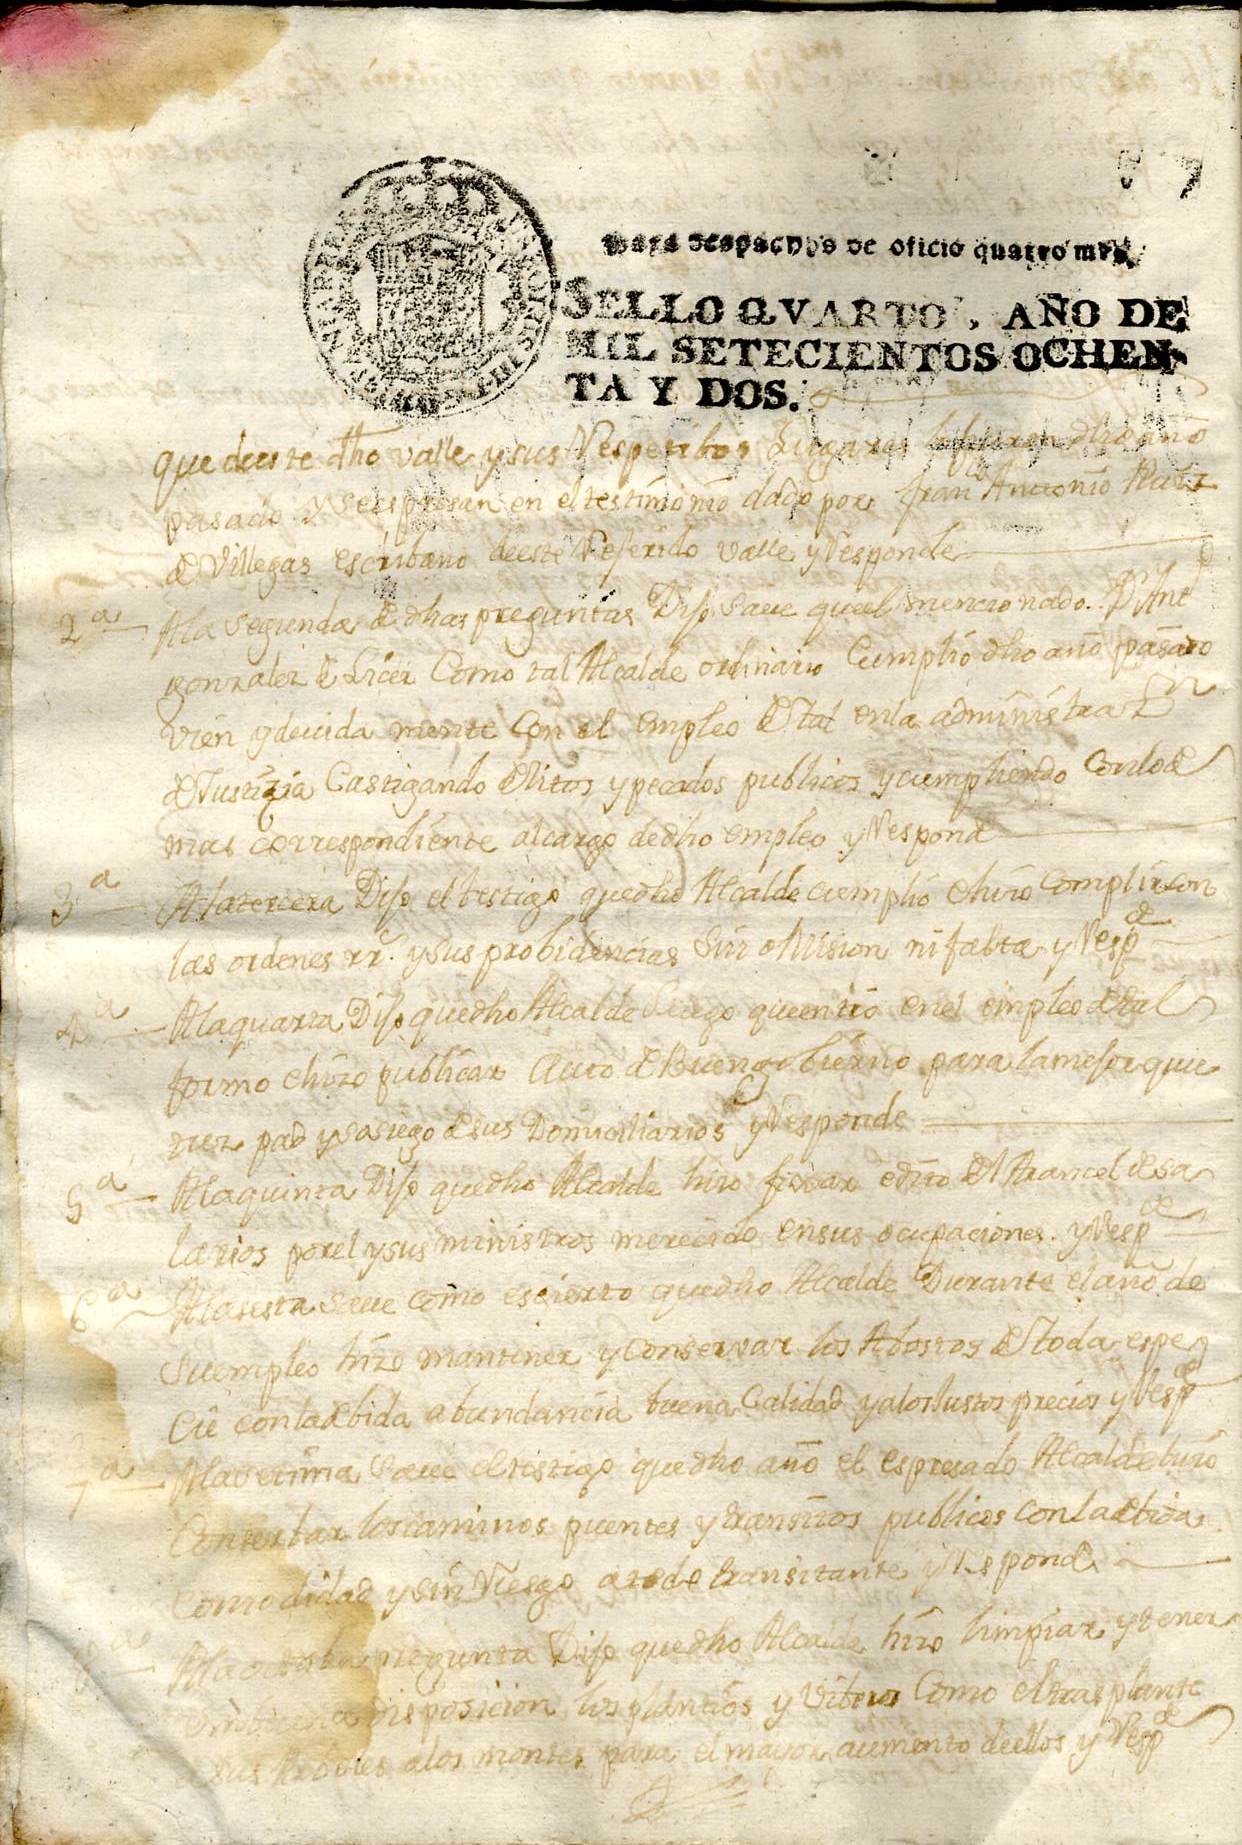 7
Para despachos de oficio quatro mrs.
SELLO QVARTO, AÑO DE
MIL SETECIENTOS OCHEN-
TA Y DOS.
que deeste dho valle y sus Respectibos Lugares dho año
pasado y se espresan en el testimonio dado por Franco Antonio Ruiz
de Villegas escribano deeste Referido valle y Responde
2a Ala segunda de dhas preguntas Dijo save queel mencionado Dn Anto
gonzalez de Como tal Alcalde ordinario Cumplió dho año pasado
vien y devida mente con el empleo de tal enla administrazn
de Justizia Castigando delitos y pecados publicos y cumpliendo Conlode
mas correspondiente alcargo dedho empleo y Responde
3a Alatercera Dijo el testigo quedho Alcalde cumplió ehizo complir con
las ordenes rrs. y sus probidencias sin omision ni falta y Respde
4a Alaquarta Dijo quedho Alcalde Luego queentró enel empleo detal
formo ehizo publicar Auto de Buen gobierno para lamejor quie
tuz paz y sosiego desus Domiciliarios y Responde
5a Alaquinta Dijo quedho Alcalde hizo fixar edito del Arancel desa
larios porel ysus ministros merecido ensus ocupaciones. y Respde
6a Alasesta save como escierto quedho Alcalde Durante elaño de
suempleo hizo mantener y conservar los Abostos de toda espe
cie conladebida abundancia buena Calidad yalosJustos precios y Respde
7a Alasetima save eltestigo quedho año el espresado Alcalde hizo
Conserbar loscaminos puentes y transitos publicos conladebida
comodidad y sin Riesgo atodo transitante y Responde
8a Alaoctaba pregunta Dijo quedho Alcalde hizo limpiar, y tener
enbuena disposicion los plantios y viberos Como eltrasplante
desus Arboles alos montes para el mayor aumento deellos y Respde